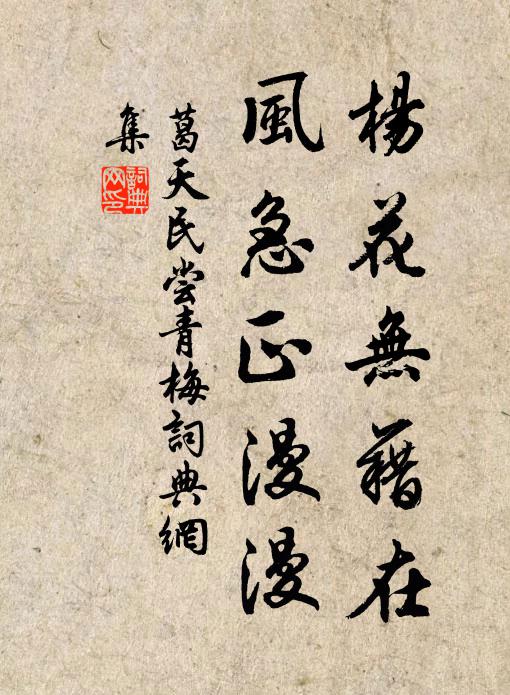 楊花無藉在
風急正漫漫
葛天民尝青梅詞典網
集
詞典
网印